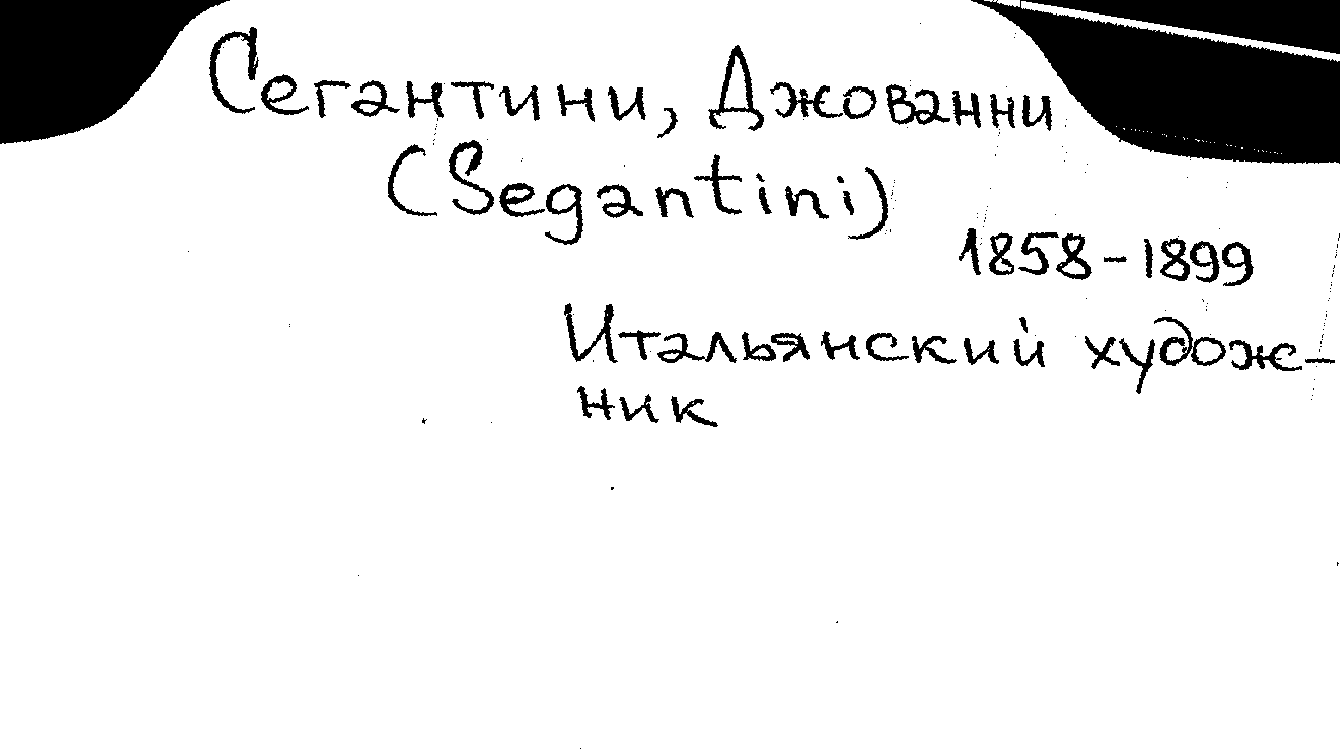 Сегантини, Джованни
(Segantini)
1858-1899
Итальянский худож-
ник